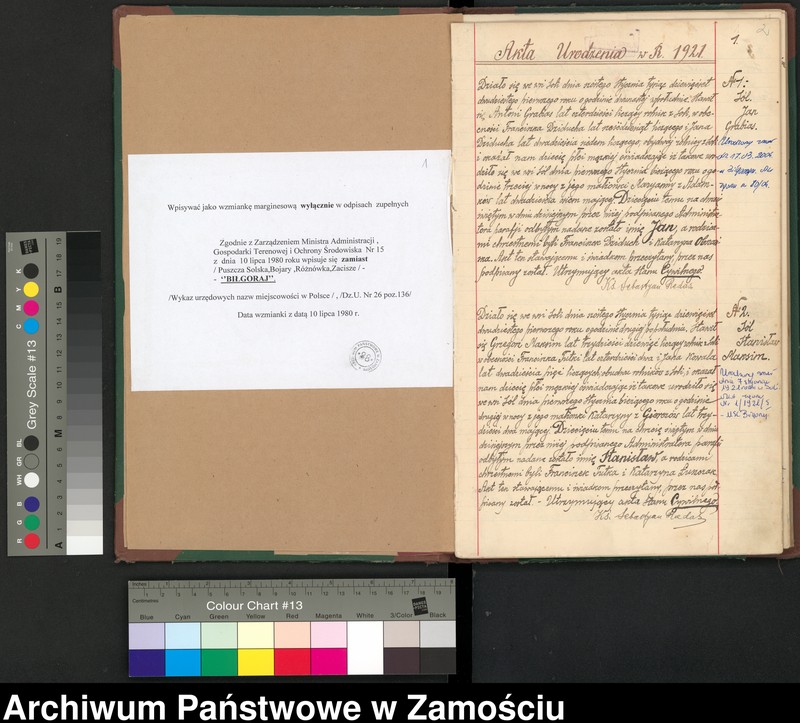 1
Wpisywać jako wzmiankę marginesową wyłącznie w odpisach zupełnych
Zgodnie z Zarządzeniem Ministra Administracji ,
Gospodarki Terenowej i Ochrony Środowiska Nr 15
z dnia 10 lipca 1980 roku wpisuje się zamiast
/ Puszcza Solska,Bojary ,Różnówka,Zacisze / -
- ‘’BIŁGORAJ’’.
/Wykaz urzędowych nazw miejscowości w Polsce / , /Dz.U. Nr 26 poz.136/
Data wzmianki z datą 10 lipca 1980 r.
Akta Urodzenia w R. 1921
1.
2
Działo się we wsi Soli dnia szóstego Stycznia tysiąc dziewięćset
dwudziestego pierwszego roku o godzinie dwunastej
się, Antoni Grabias lat czterdzieści liczący rolnik z Soli, w obe-
cności Franciszka Dziducha lat sześćdziesiąt liczącego i Jana
Dziducha lat dwadzieścia siedem liczącego, obydwóch rolników z Soli
i okazał nam dziecię płci męskiej oświadczając iż takowe uro-
dziło się we wsi Sól dnia pierwszego Stycznia bieżącego roku o go-
dzinie trzeciej w nocy z jego małżonki Maryanny z
lat dwadzieścia osiem mającej. Dziecięciu temu na chrzcie
świętym w dniu dzisiejszym przez niżej podpisanego Administra-
tora parafii odbytym nadane zostało imię Jan, a rodzica-
mi chrzestnemi byli Franciszek Dziduch i Katarzyna
Akt ten stawającemu i świadkom przeczytany, przez nas
podpisany został. Utrzymujący akta Stanu Cywilnego
Ks. Sebastyan Radas
№ 1.
Sól.
Jan
Grabias.
Działo się we wsi Soli dnia szóstego Stycznia tysiąc dziewięćset
dwudziestego pierwszego roku o godzinie drugiej po południu. Stawił
się Grzegorz Marsim lat trzydzieści dziewięć liczący rolnik z Soli
w obecności Franciszka Futki lat czterdzieści dwa i Jana
lat dwadzieścia pięć liczących, obudwu rolników z Soli, i okazał
nam dziecię płci męskiej, oświadczając iż takowe urodziło się
we wsi Sól dnia pierwszego Stycznia bieżącego roku o godzinie
drugiej w nocy z jego małżonki Katarzyny z lat trzy-
dzieści dwa mającej. Dziecięciu temu na chrzcie świętym w dniu
dzisiejszym przez niżej podpisanego Administratora parafii
odbytym nadane zostało imię Stanisław, a rodzicami
chrzestnemi byli Franciszek Futka i Katarzyna
Akt ten stawającemu i świadkom przeczytany, przez nas pod-
pisany został. - Utrzymujący akta Stanu Cywilnego
Ks. Sebastyan Radas
№ 2.
Sól
Stanisław
Marsim.
Grey Scale #13
R G B W H GR BL C M Y K
A 1 2 3 4 5 6 M 8 9 10 11 12 13 14 15 B 17 18 19
Inches
Centimetres
Colour Chart #13
Blue Cyan Green Yellow Red Magenta White 3/Color Black
Archiwum Państwowe w Zamościu